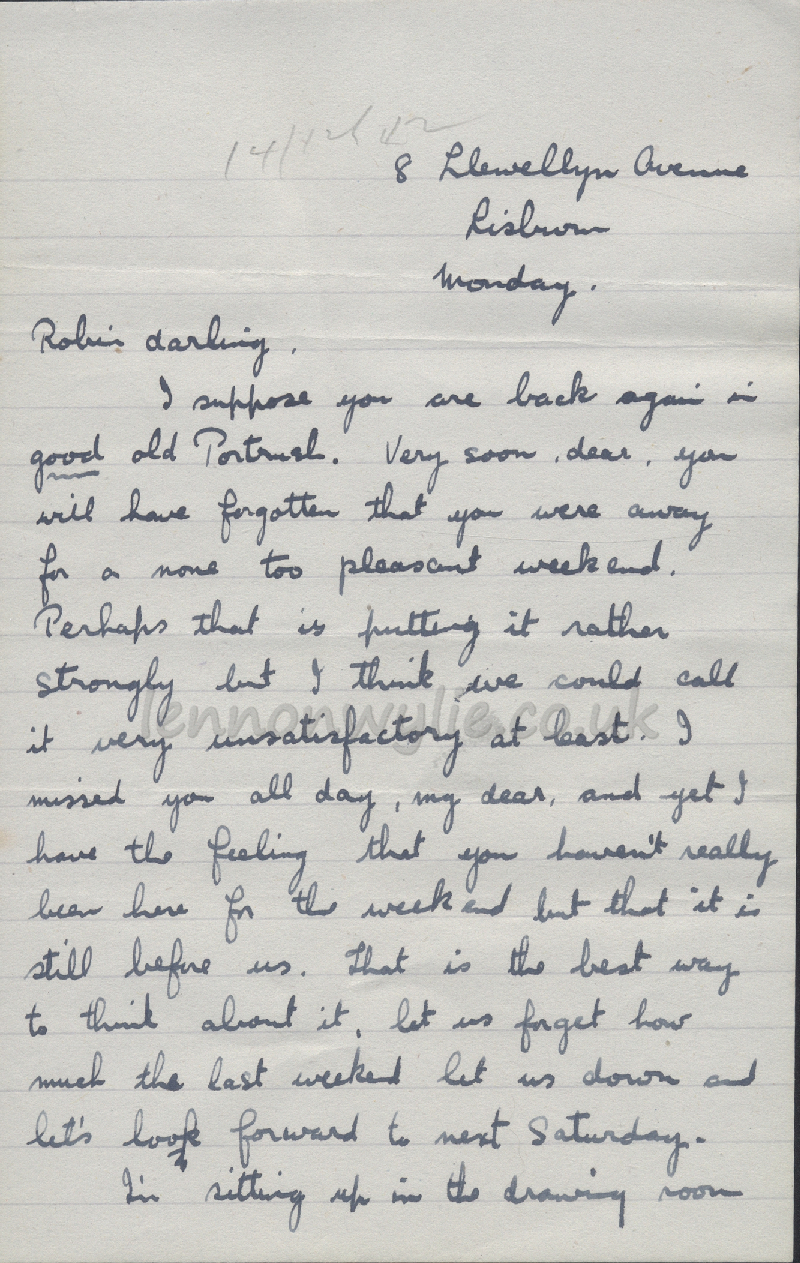 14/12/42
8 Llewellyn Avenue
Lisburn
Monday.
Robin darling,
I suppose you are back again in
good old Portrush. Very soon, dear, you
will have forgotten that you were away
for a none too pleasant weekend.
Perhaps that is putting it rather
strongly but I think we could call
it very unsatisfactory at least. I
missed you all day, my dear, and yet I
have the feeling that you haven't really
been here for the weekend but that it is
still before us. That is the best way
to think about it, let us forget how
much the last weekend let us down and
let's look forward to next Saturday.
I'm sitting up in the drawing room
lennonwylie.co.uk